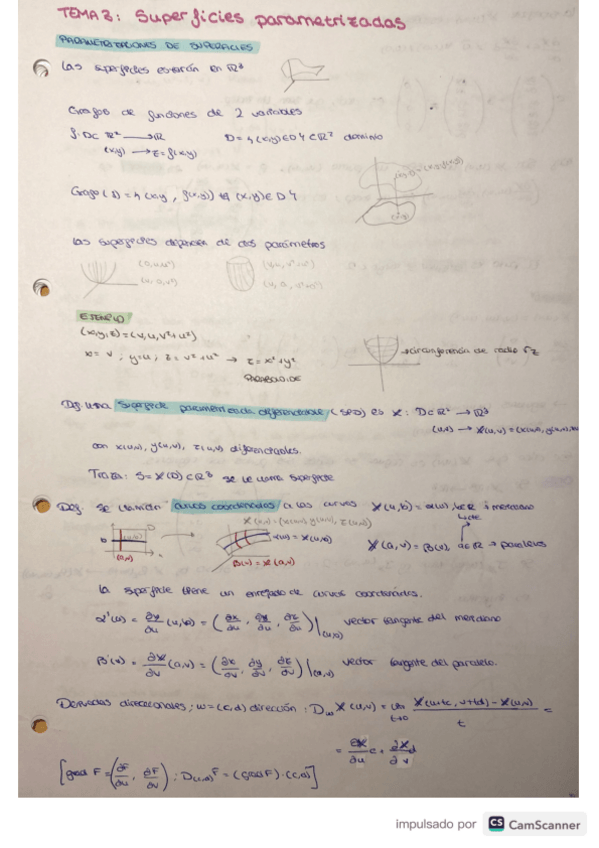 TEMA 3: Superficies parametrizadas
PARAMETRIZACIONES DE SUPERFICIES
Las superficies estarán en ℝ³
Grafos de funciones de 2 variables
f: D⊂ ℝ² → ℝ D = { (x,y) ∈ D } ⊂ ℝ² dominio
(x,y) → z = f(x,y)
Grafo (f) = { (x,y, f(x,y)) (x,y) ∈ D }
Las superficies dependen de dos parámetros
EJEMPLO
(x,y,z) = (v,u,v²+u²)
x = v ; y = u ; z = v² + u² → z = x² + y² → circunferencia de radio √z
PARABOLOIDE
Def: una superficie parametrizada diferenciable (SPD) es X : D⊂ℝ² → ℝ³
(u,v) → X(u,v) = (x(u,v), y(u,v),
con x(u,v), y(u,v), z(u,v) diferenciables.
Traza: S = X(D) ⊂ ℝ³ se le llama superficie
Def: se llaman curvas coordenadas a las curvas X(u,b) = α(u), b∈ℝ meridiano
X(u,v) = (x(u,v), y(u,v), z(u,v)) cte
α(u) = X(u,b) X(a,v) = β(v), a∈ℝ → paralelos
β(v) = X(a,v)
La superficie tiene un enrejado de curvas coordenadas.
α'(u) = ∂X/∂u (u,b) = (∂x/∂u, ∂y/∂u, ∂z/∂u)|(u,b) vector tangente del meridiano
β'(v) = ∂X/∂v (a,v) = (∂x/∂v, ∂y/∂v, ∂z/∂v)|(a,v) vector tangente del paralelo.
Derivadas direccionales; w = (c,d) dirección : D_w X(u,v) = lim t→0 X(u+tc, v+td) - X(u,v) / t =
= ∂X/∂u c + ∂X/∂v d
[grad F = (∂F/∂u, ∂F/∂v) ; D(c,d) F = (grad F) · (c,d)]
impulsado por CS CamScanner